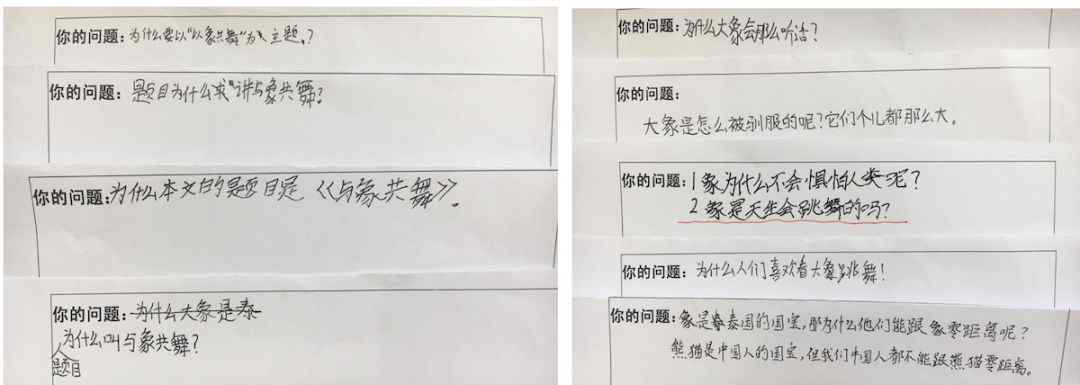 你的问题:为什么要以“以象共舞”为主题。?
你的问题:题目为什么求“讲与象共舞?
你的问题:为什么本文的题目是《与象共舞》。
你的问题:为什么大象是泰
为什么叫与象共舞?
题目
你的问题:为什么大象会那么听话?
你的问题:
大象是怎么被驯服的呢?它们个儿都那么大。
你的问题:1象为什么不会惧怕人类呢?
2象是天生会跳舞的吗?
你的问题:为什么人们喜欢看大象跳舞!
你的问题:象是泰国的国宝,那为什么他们能跟象零距离呢?
熊猫是中国人的国宝,但我们中国人都不能跟熊猫零距离。